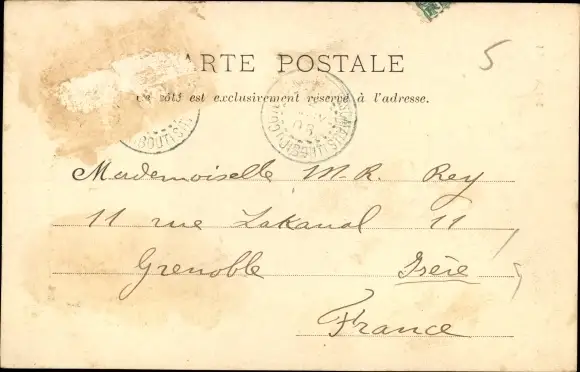 5
ARTE POSTALE
côté est exclusivement réservé à l'adresse.
Mademoiselle M. R. Rey
11 rue Lakanal 11
Grenoble Isère
France